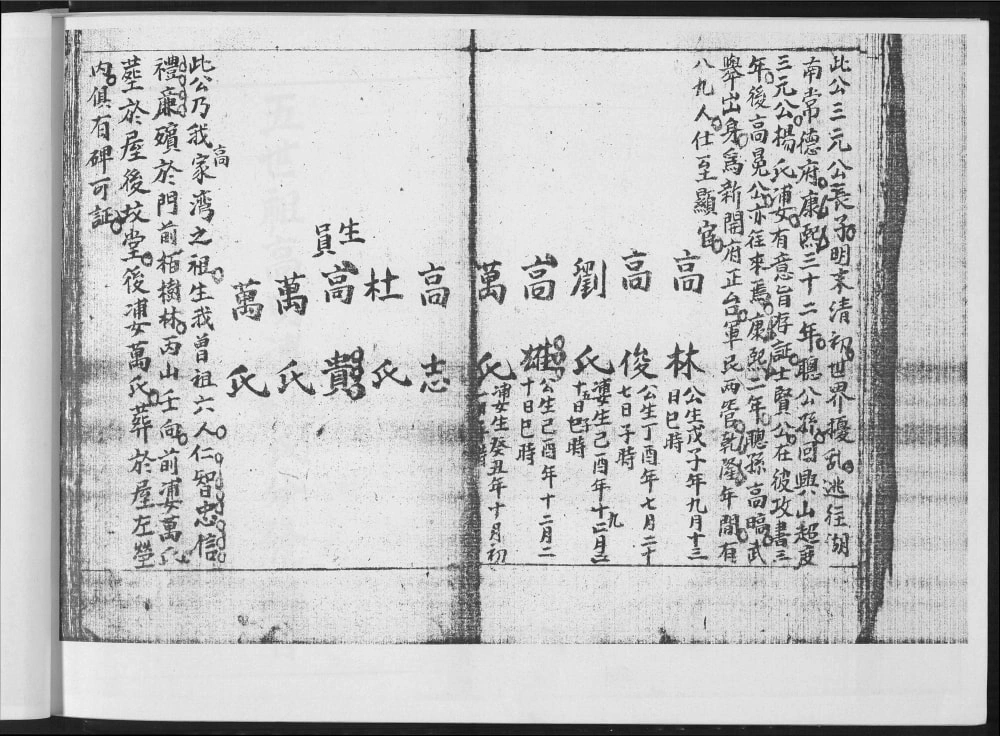 此公三元公長子明末清初世界擾乱逃往湖
南常德府康熙三十二年聰公孫回興山超度
三元公揚氏㜑有意旨存証士賢公在彼攻書三
年後高晃公亦往來焉康熙二年聰孫高臨武
舉出身為新開府正台軍民两管乾隆年間有
八九人仕至顯官
高林 公生戊子年九月十三
日巳時
高俊 公生丁酉年七月二十
七日子時
劉氏 㜑生己酉年十二月
十五日巳時
高雄 公生己酉年十二月二
十日巳時
萬氏 㜑生癸丑年十月初
高志
杜氏
生員高貴
萬氏
萬氏
此公乃我高家湾之祖生我曾祖六人仁智忠信
禮廉殯於門前栢樹林丙山壬向前㜑萬氏
塟於屋後坟堂後㜑萬氏葬於屋左塋
内俱有碑可証